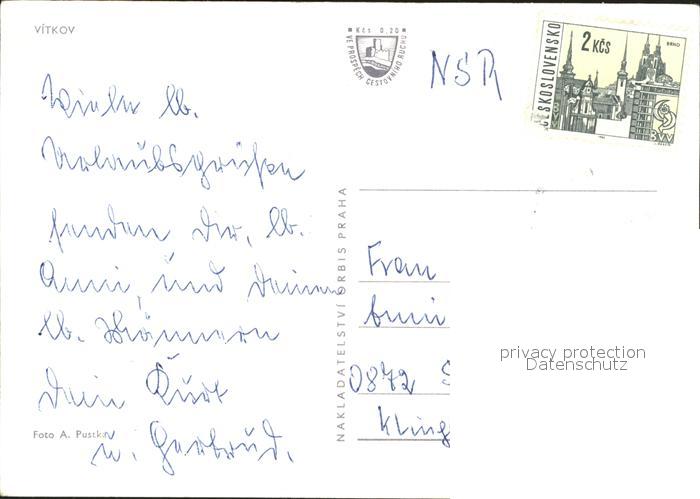 VÍTKOV
Kčs 0,20
VE PROSPĚCH CESTOVNÍHO RUCHU
NSR
ČESKOSLOVENSKO
2 Kčs
BRNO
BVV
Viele lb.
Urlaubsgrüßen
senden Dir, lb.
Anni, und Deinen
lb. Männern
Dein Kurt
u. Gertrud.
Foto A. Pustka
NAKLADATELSTVÍ ORBIS PRAHA
Frau
Anni
0872 S
Kling
privacy protection
Datenschutz